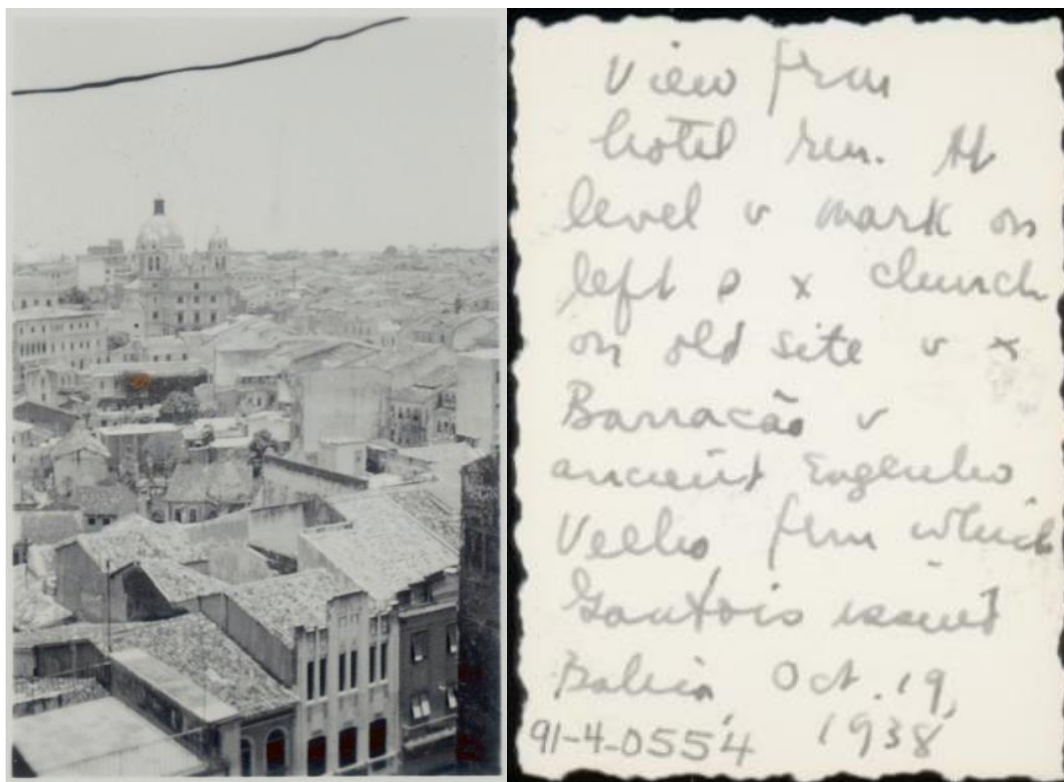 View from
hotel rm. At
level v mark on
left o x church
on old site v x
Barracão v
ancient Engenho
Velho, from which
Gantois issued
Bahia, Oct. 19,
1938
91-4-0554